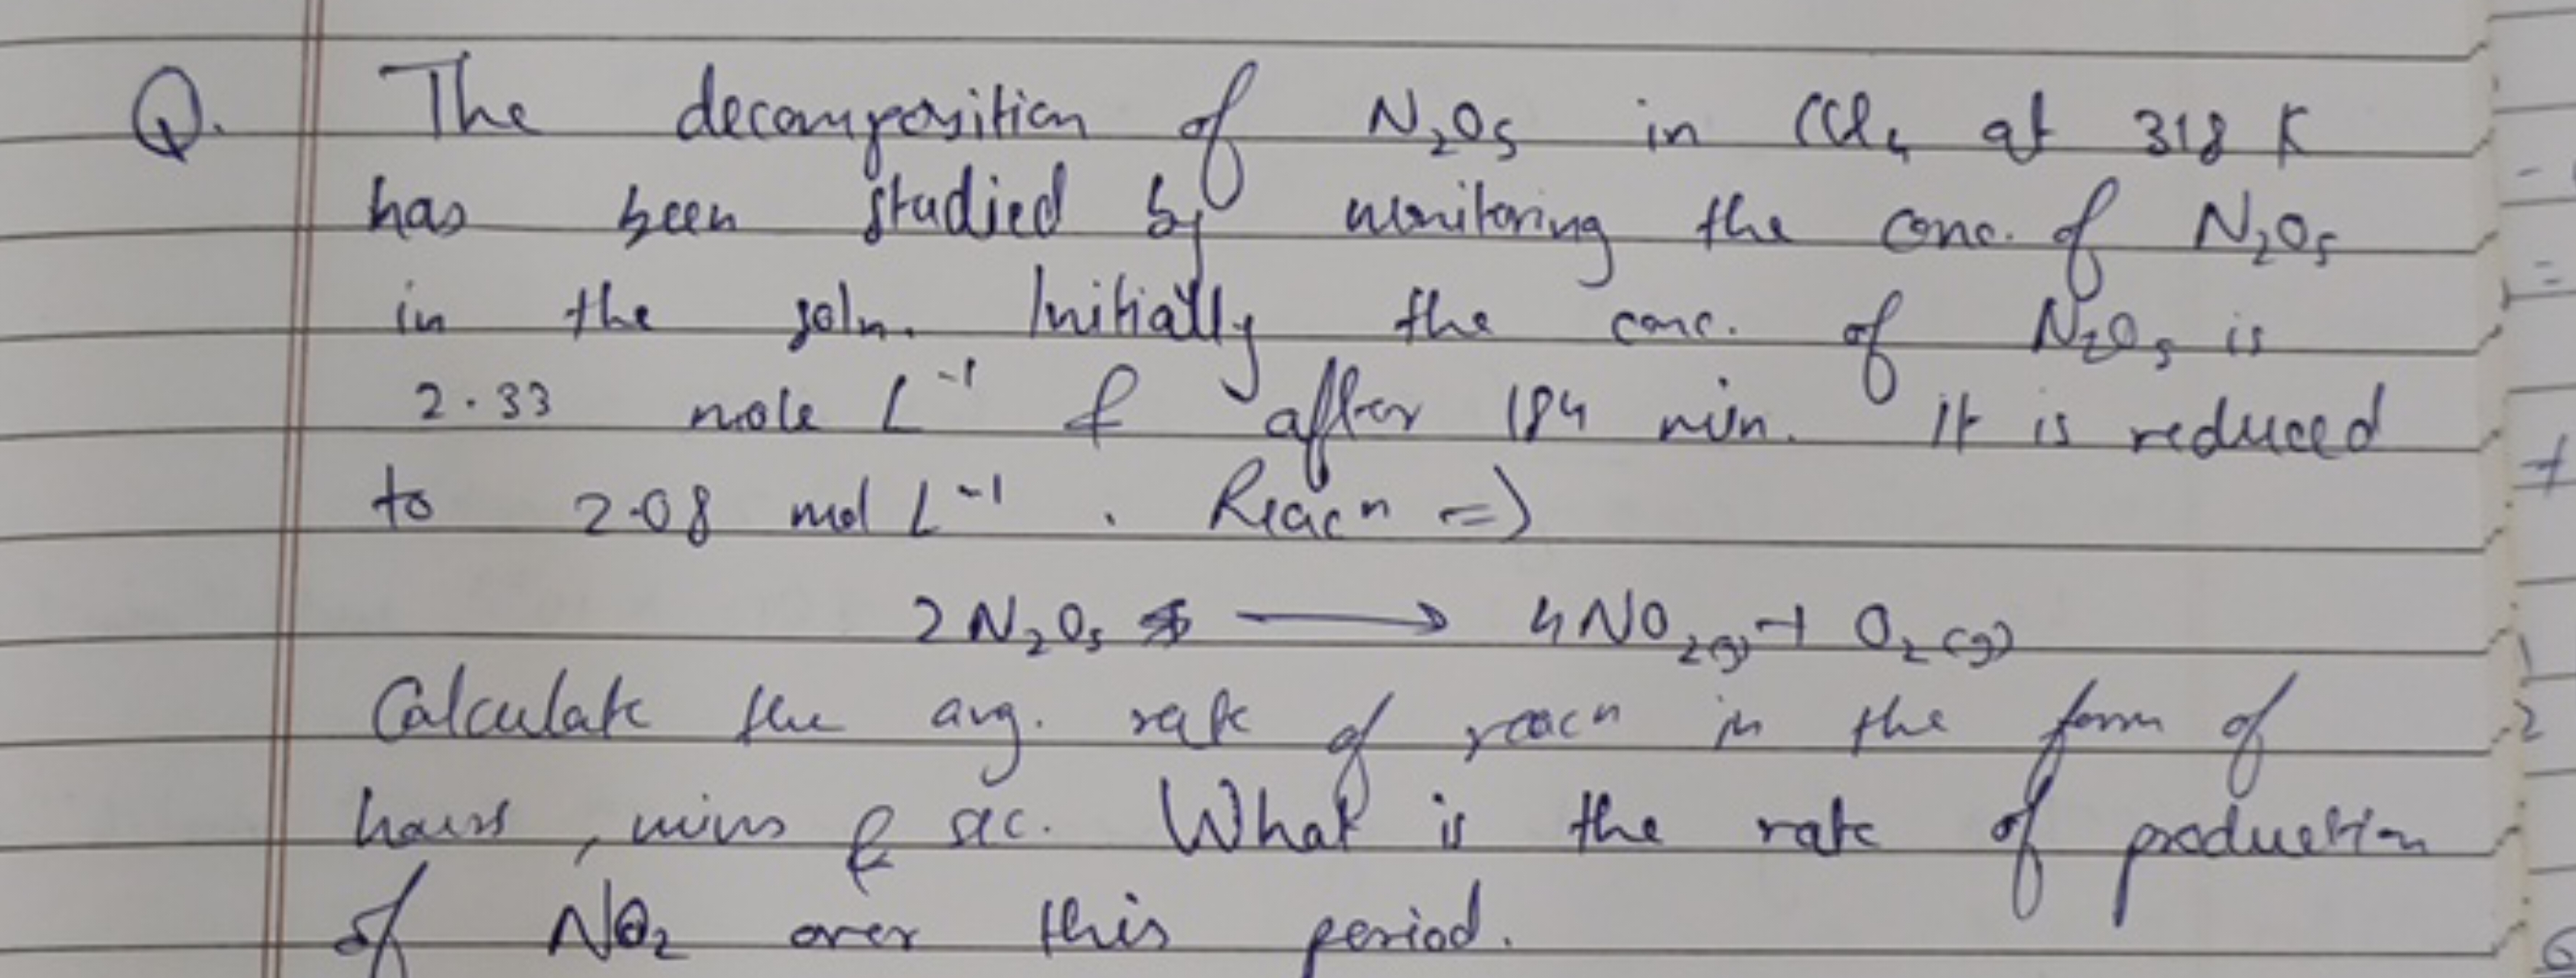 Q. The decomposition of N₂O₅ in CCl₄ at 318 K
has been studied by monitoring the conc. of N₂O₅
in the soln. Initially the conc. of N₂O₅ is
2.33 mole L⁻¹ & after 184 min. it is reduced
to 2.08 mol L⁻¹. Reacⁿ ⇒
2N₂O₅ ⟶ 4NO₂(g) + O₂(g)
Calculate the avg. rate of reacⁿ in the form of
hours, mins & sec. What is the rate of production
of NO₂ over this period.